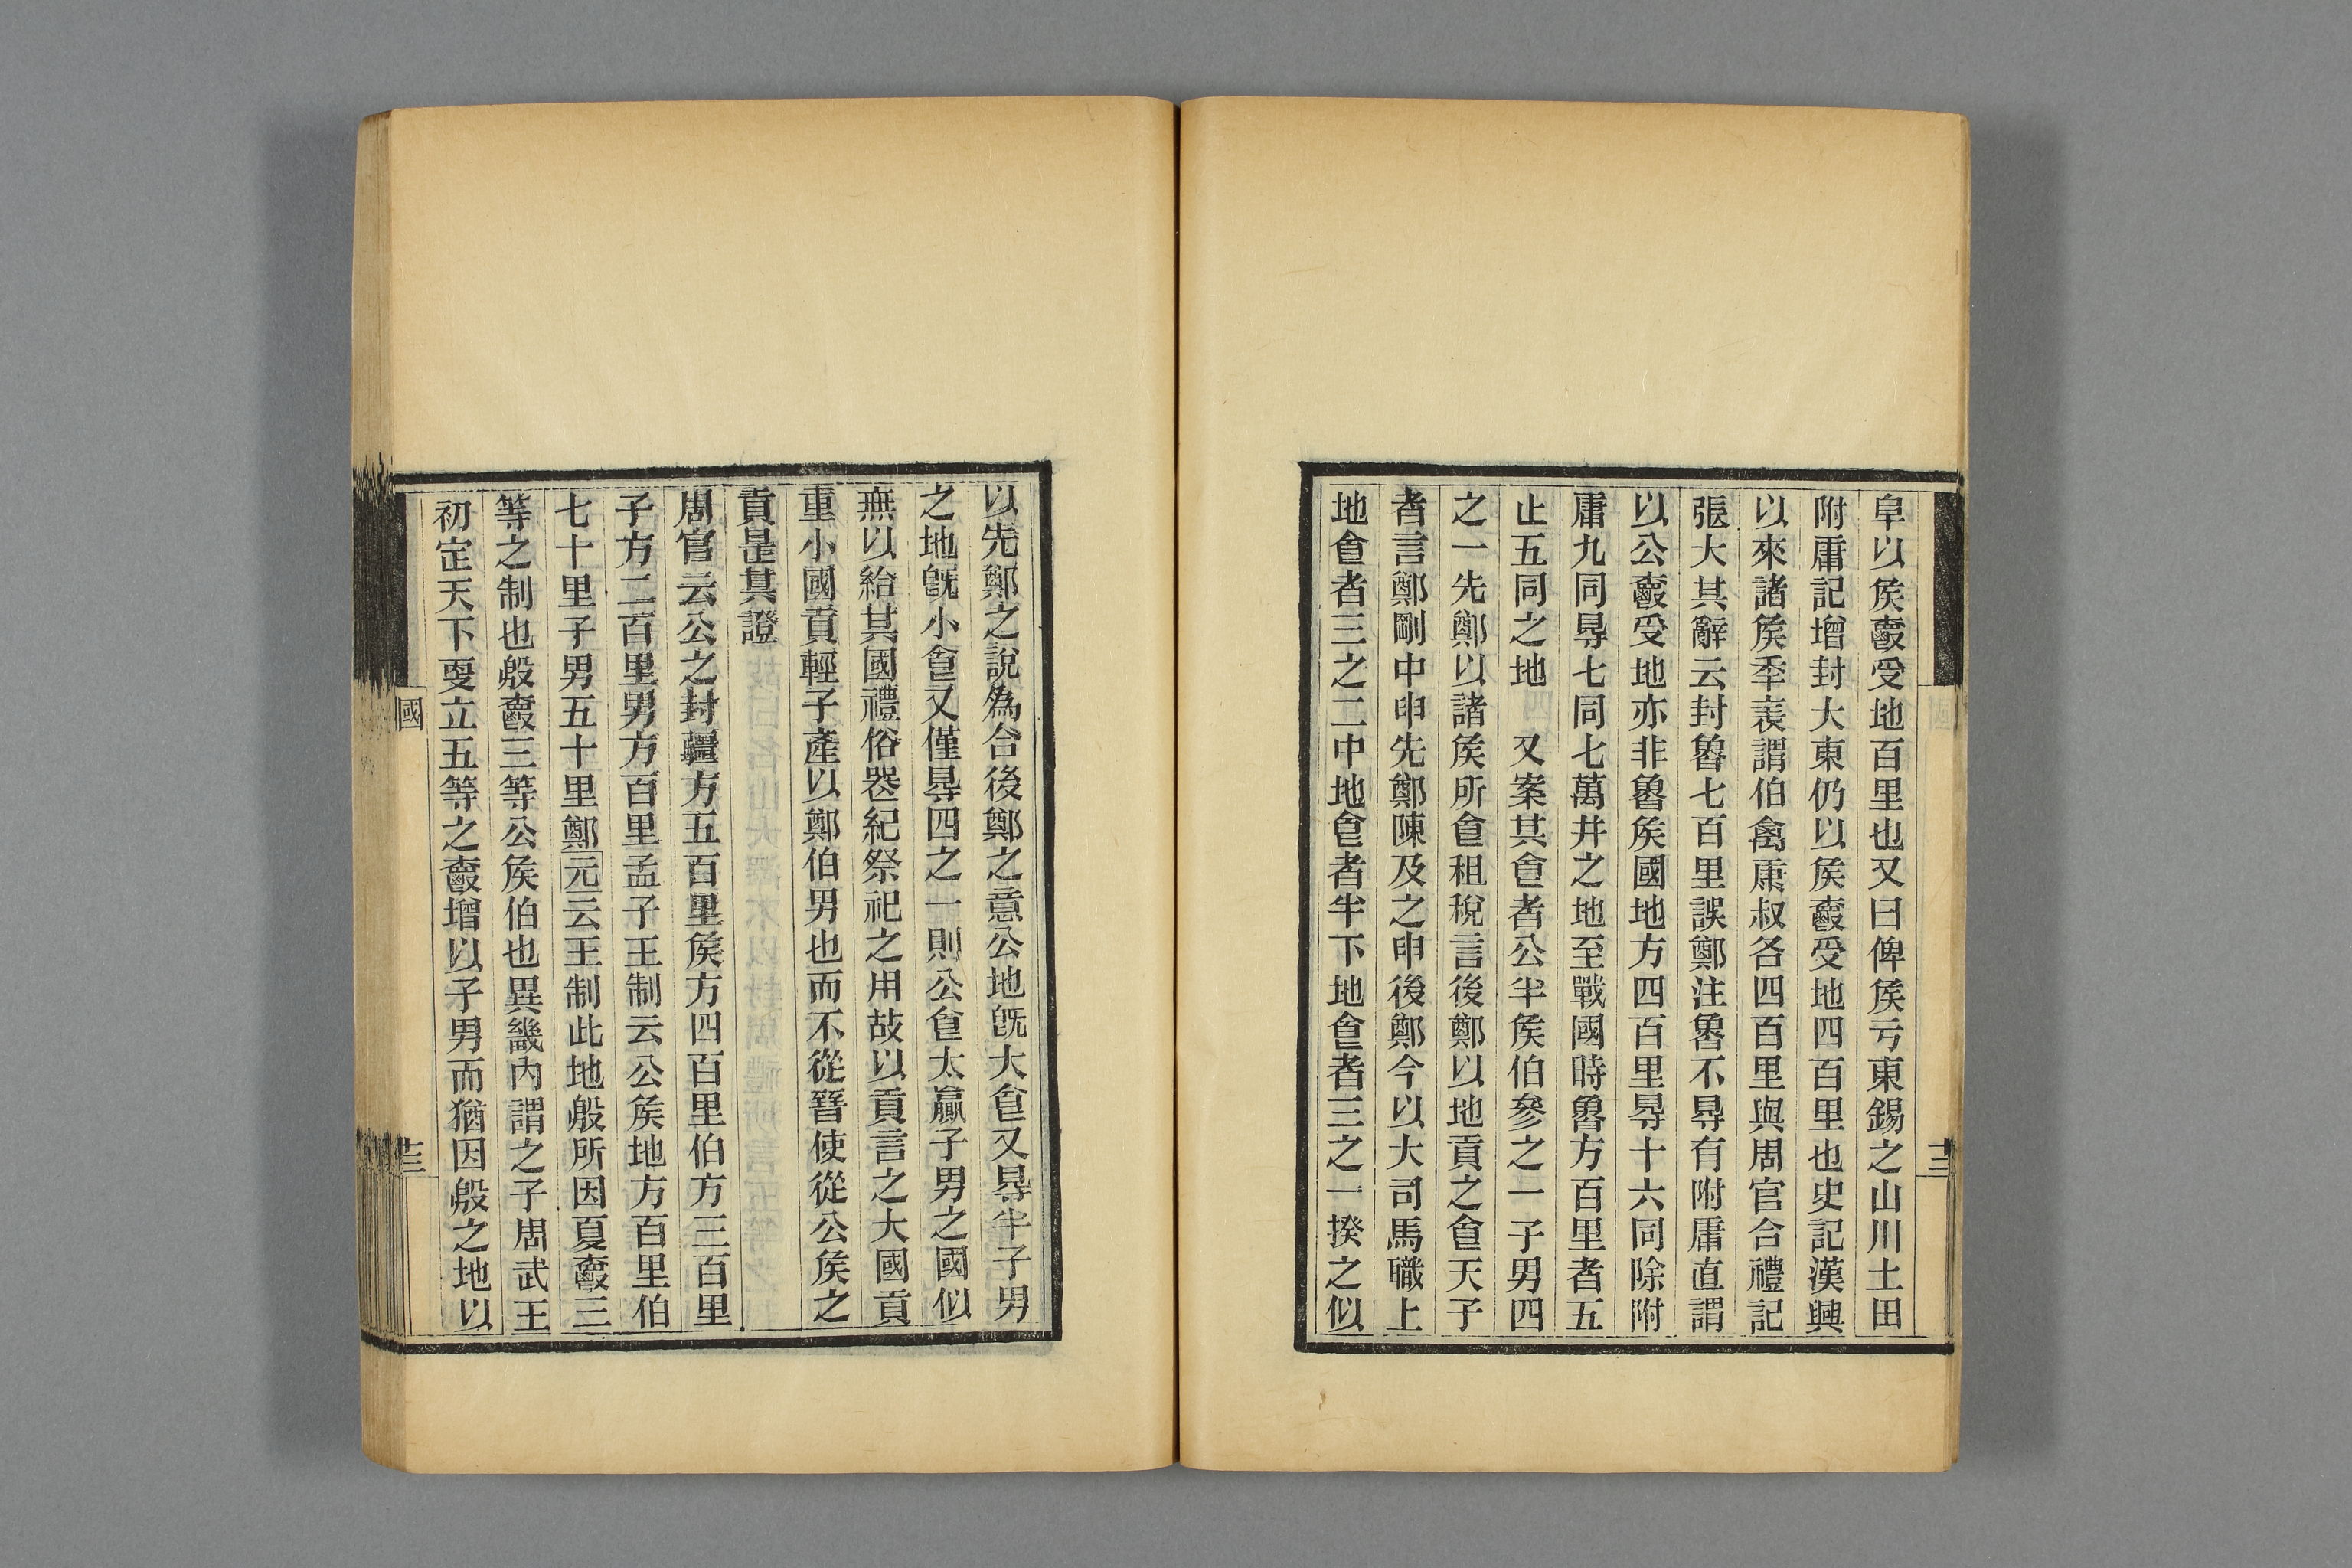 阜以矦𤔲受地百里也又曰俾矦亏東錫之山川土田
附庸記增封大東仍以矦𤔲受地四百里也史記漢興
以來諸矦秊表謂伯禽康叔各四百里與周官合禮記
張大其辭云封魯七百里誤鄭注魯不㝵有附庸直謂
以公𤔲受地亦非魯矦國地方四百里㝵十六同除附
庸九同㝵七同七萬井之地至戰國時魯方百里者五
止五同之地　又案其𠊊者公半矦伯參之一子男四
之一先鄭以諸矦所𠊊租稅言後鄭以地貢之𠊊天子
者言鄭剛中申先鄭陳及之申後鄭今以大司馬職上
地𠊊者三之二中地𠊊者半下地𠊊者三之一揆之似
以先鄭之說爲合後鄭之意公地旣大𠊊又㝵半子男
之地旣小𠊊又僅㝵四之一則公𠊊太贏子男之國似
無以給其國禮俗器紀祭祀之用故以貢言之大國貢
重小國貢輕子產以鄭伯男也而不從晉使從公矦之
貢是其證
周官云公之封疆方五百里矦方四百里伯方三百里
子方二百里男方百里孟子王制云公矦地方百里伯
七十里子男五十里鄭元云王制此地殷所因夏𤔲三
等之制也殷𤔲三等公矦伯也異畿內謂之子周武王
初定天下更立五等之𤔲增以子男而猶因殷之地以
國
十三